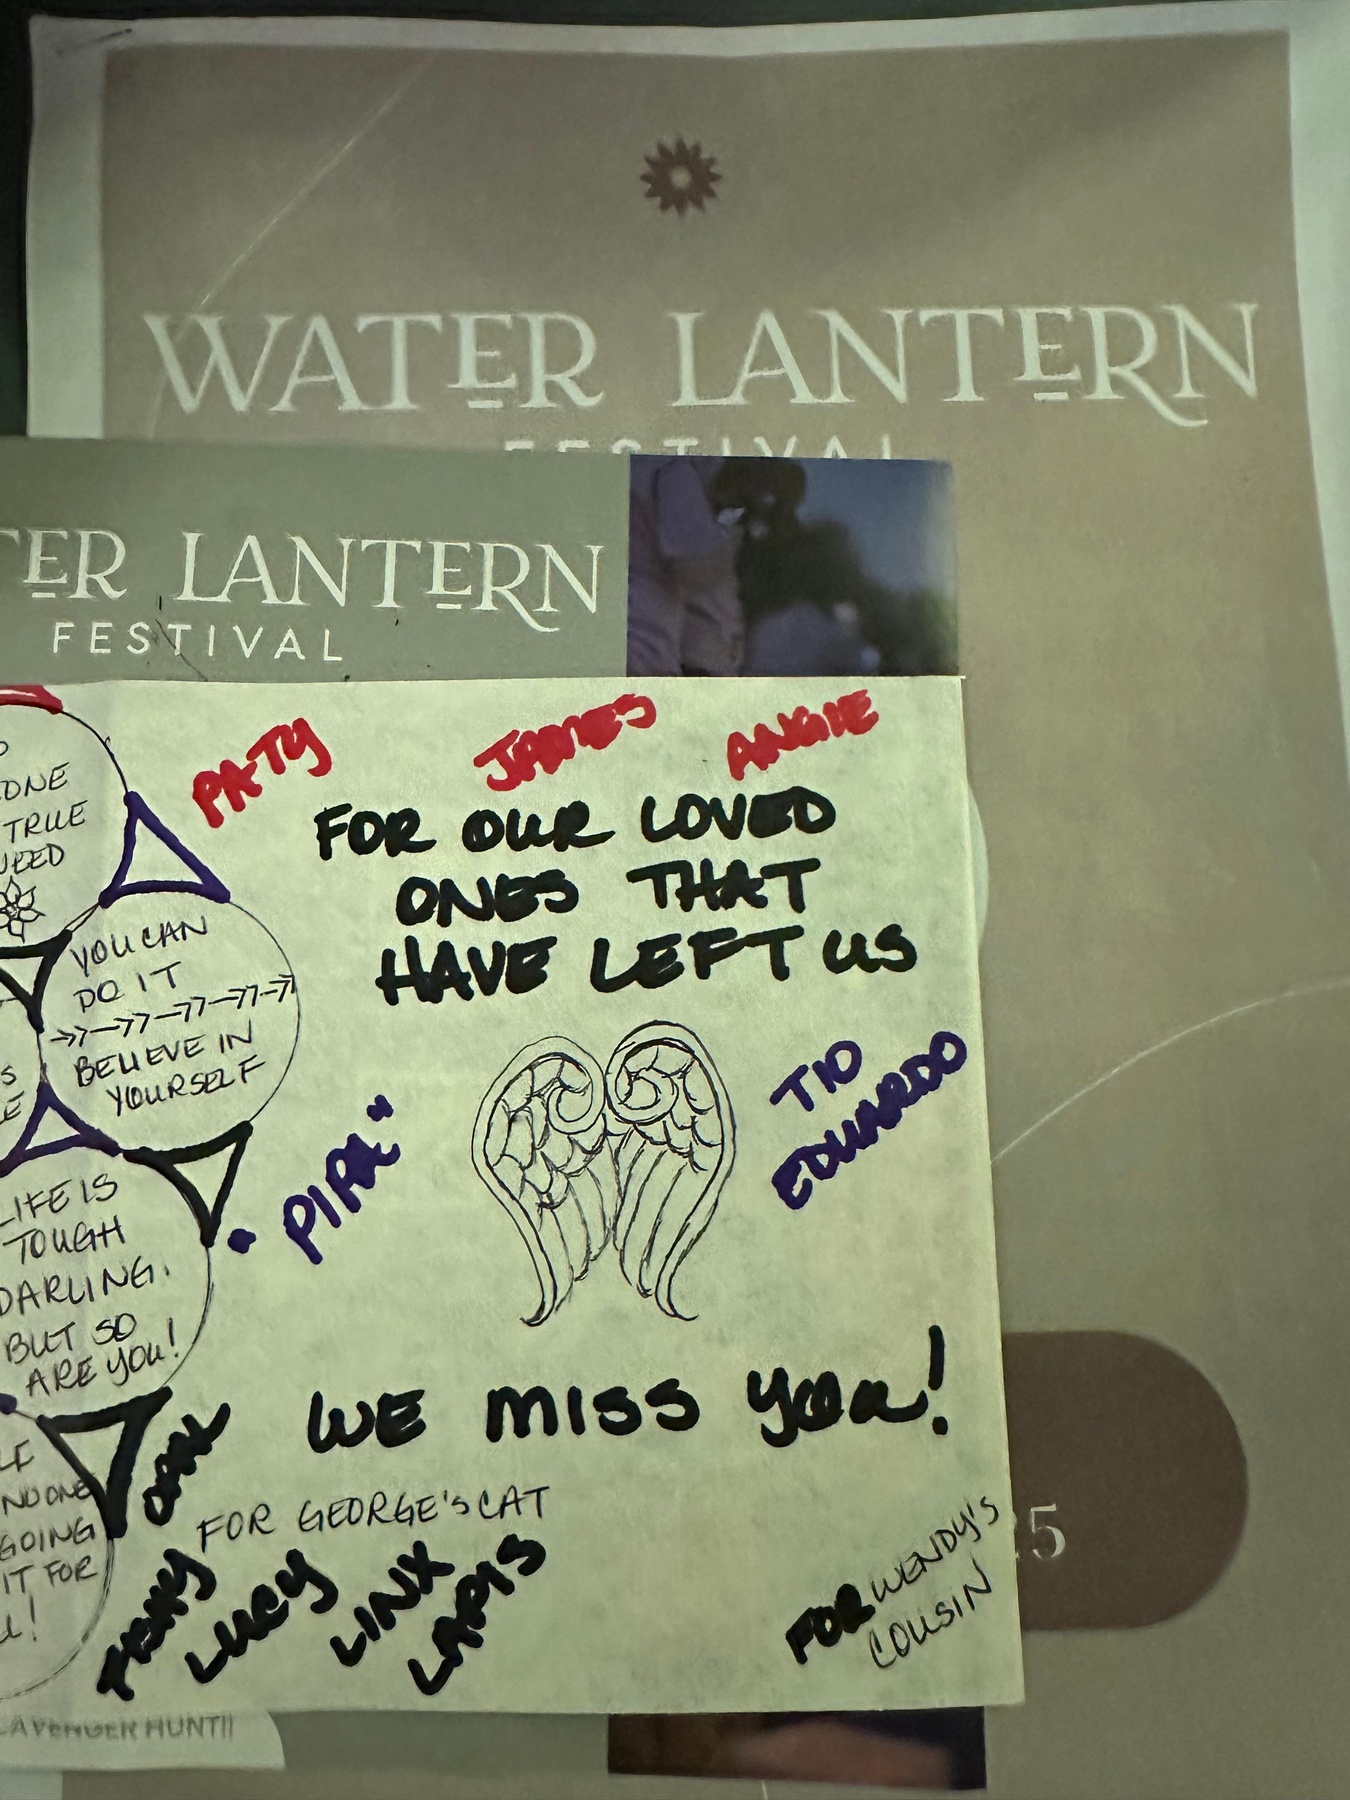 WATER LANTERN
FESTIVAL
TER LANTERN
FESTIVAL
ONE
TRUE
YOU CAN
DO IT
BELIEVE IN
YOURSELF
LIFE IS
TOUGH
DARLING.
BUT SO
ARE YOU!
NO ONE
GOING
IT FOR
PATY
JAMES
ANGIE
FOR OUR LOVED
ONES THAT
HAVE LEFT US
"PIRU"
TIO
EDUARDO
WE MISS YOU!
FOR GEORGE'S CAT
LUCY
LINX
LAPIS
FOR WENDY'S
COUSIN
25
AVENGER HUNT!!